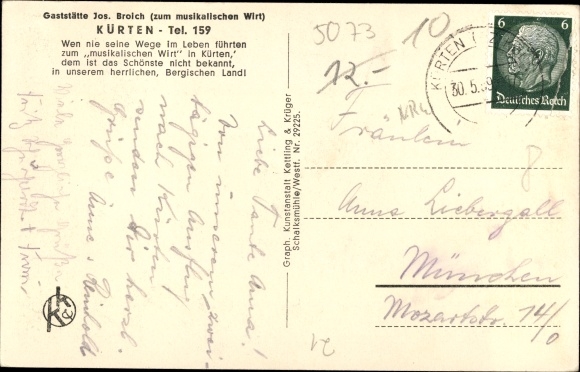 Gaststätte Jos. Broich (zum musikalischen Wirt)
KÜRTEN - Tel. 159
Wen nie seine Wege im Leben führten
zum „musikalischen Wirt" in Kürten,
dem ist das Schönste nicht bekannt,
in unserem herrlichen, Bergischen Land!
5073
10
12.-
NRW
KÜRTEN
30.5.39
6 6
Deutsches Reich
Liebe Tante Anna!
Von unserem zwei-
tägigen Ausflug
nach Kürten
senden Dir herzl.
Grüße Anne u. Reinhold
Viele
Graph. Kunstanstalt Kettling & Krüger
Schalksmühle/Westf. Nr. 29225.
K&K
Fräulein
Anna Liebergall
München
Mozartstr. 14/0
8
21